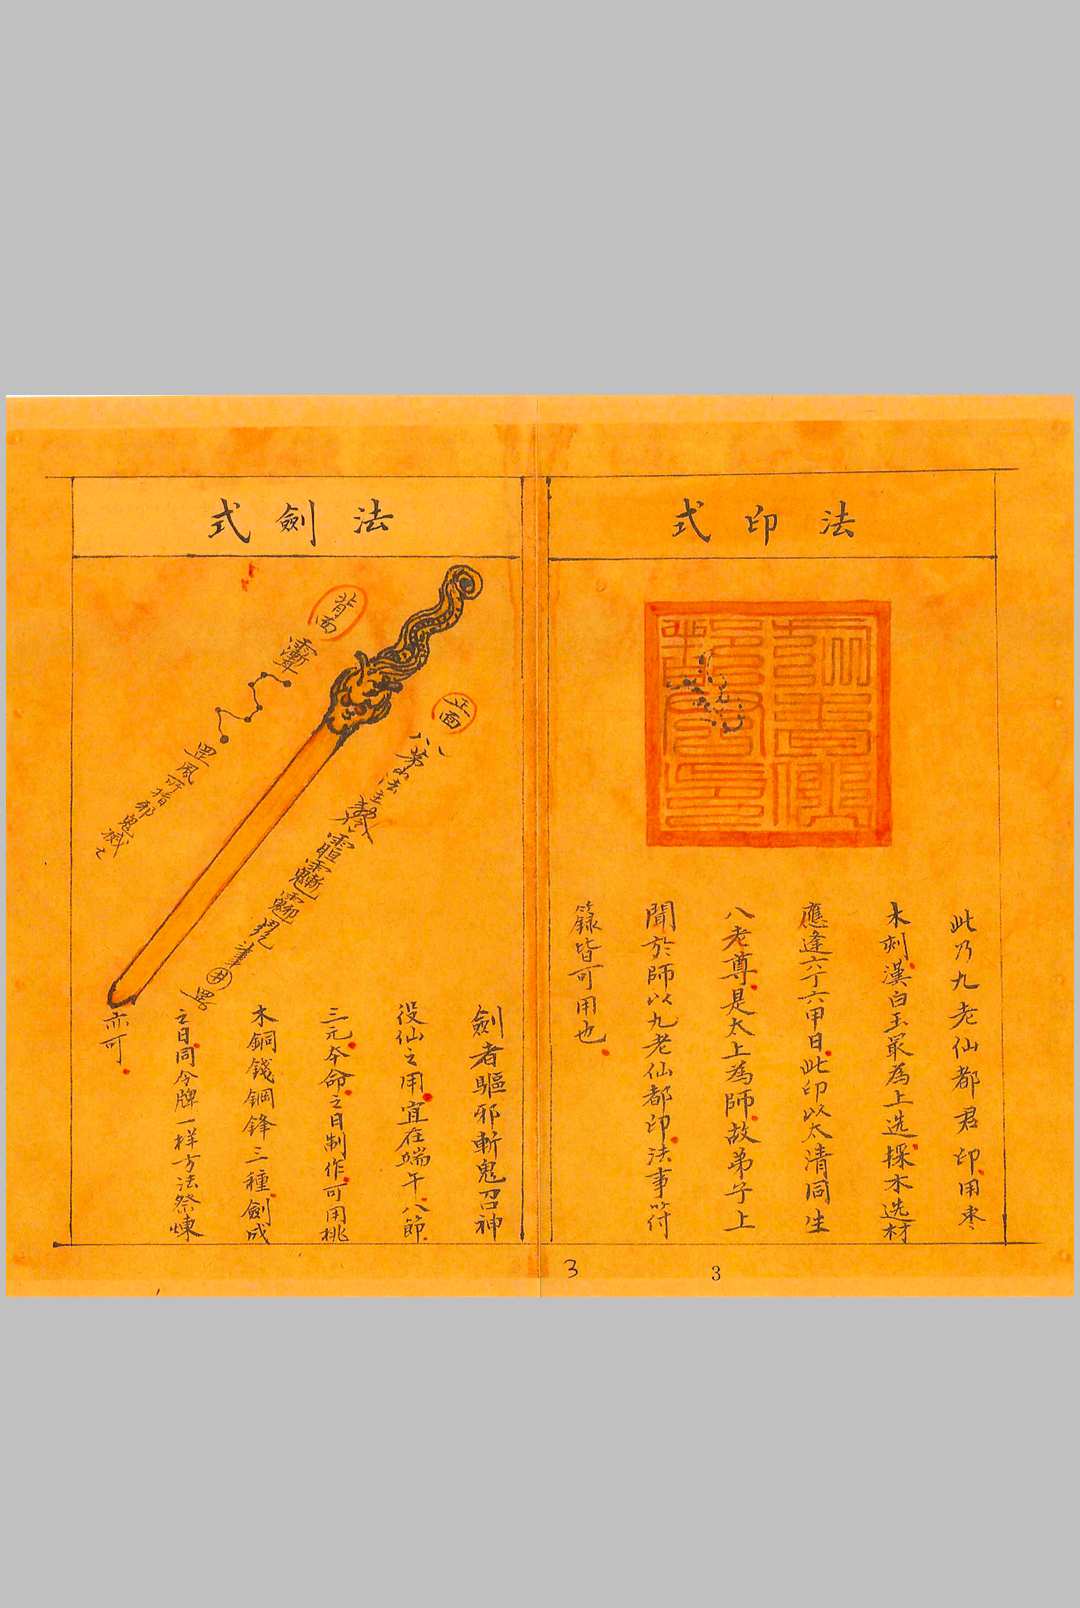 法印式
此乃九老仙都君印用枣
木刻漢白玉最為上选採木选材
應逢六丁六甲日此印以太清同生
八老尊是太上為師故弟子上
聞於師以九老仙都印法事符
籙皆可用也
3
3
法劍式
背面
罡風所指邪鬼滅亡
正面
劍者驅邪斬鬼召神
役仙之用宜在端午八節
三元本命之日制作可用桃
木銅錢鋼鋒三種劍成
之日同令牌一样方法祭煉
亦可